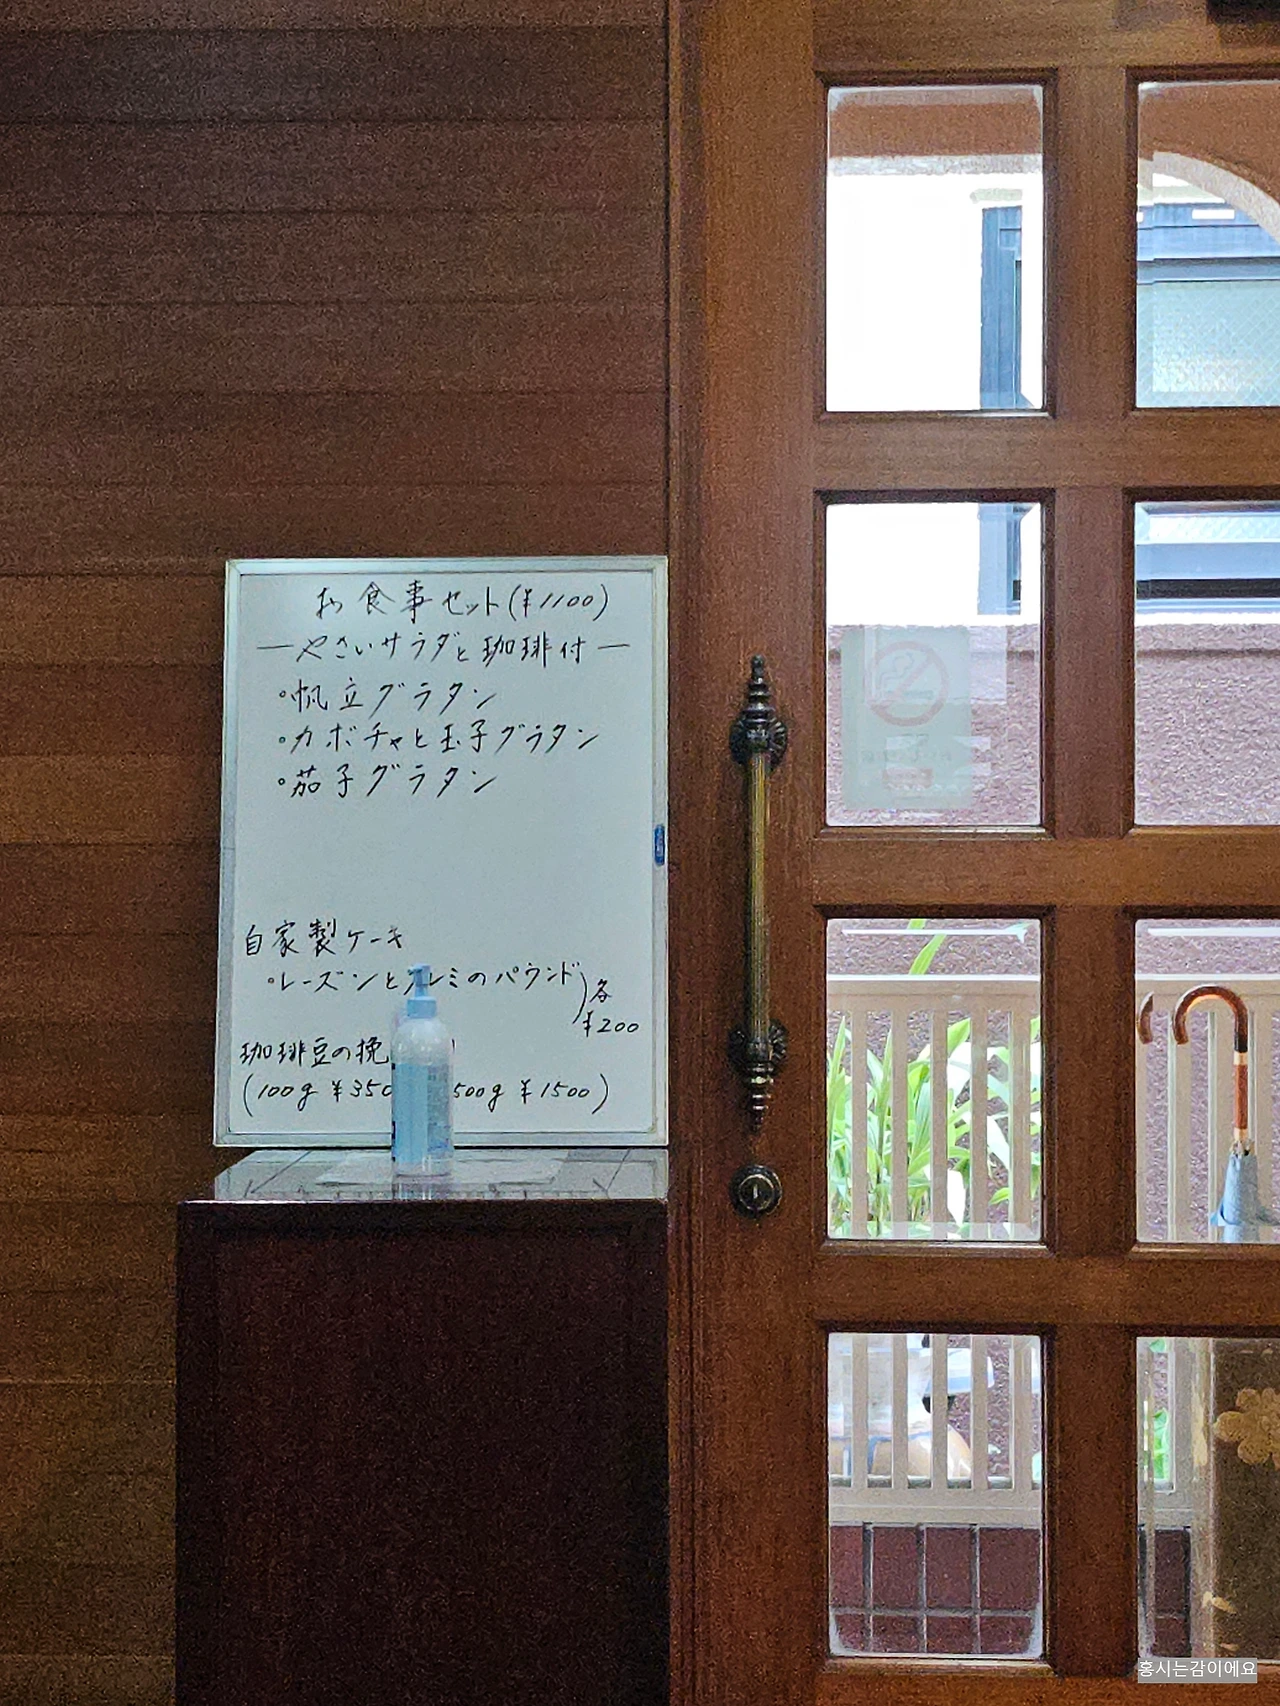 お食事セット(¥1100)
—やさいサラダと珈琲付—
・帆立グラタン
・カボチャと玉子グラタン
・茄子グラタン
自家製ケーキ
・レーズンとクルミのパウンド)各
¥200
珈琲豆の挽
(100g ¥350 500g ¥1500)
홍시는감이에요